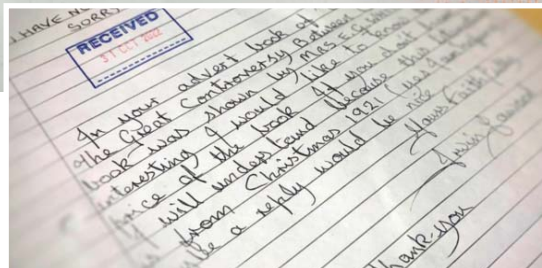 I HAVE NO
SORRY
RECEIVED
31 OCT 2022
In your advert book of
the Great Controversy Between
book was shown by MRS E.G. WH
interesting I would like to
price of the book If you should
I will understand because the
is from Christmas 1921 (yes
a reply would be nice
Yours Faithfully
Thank-you